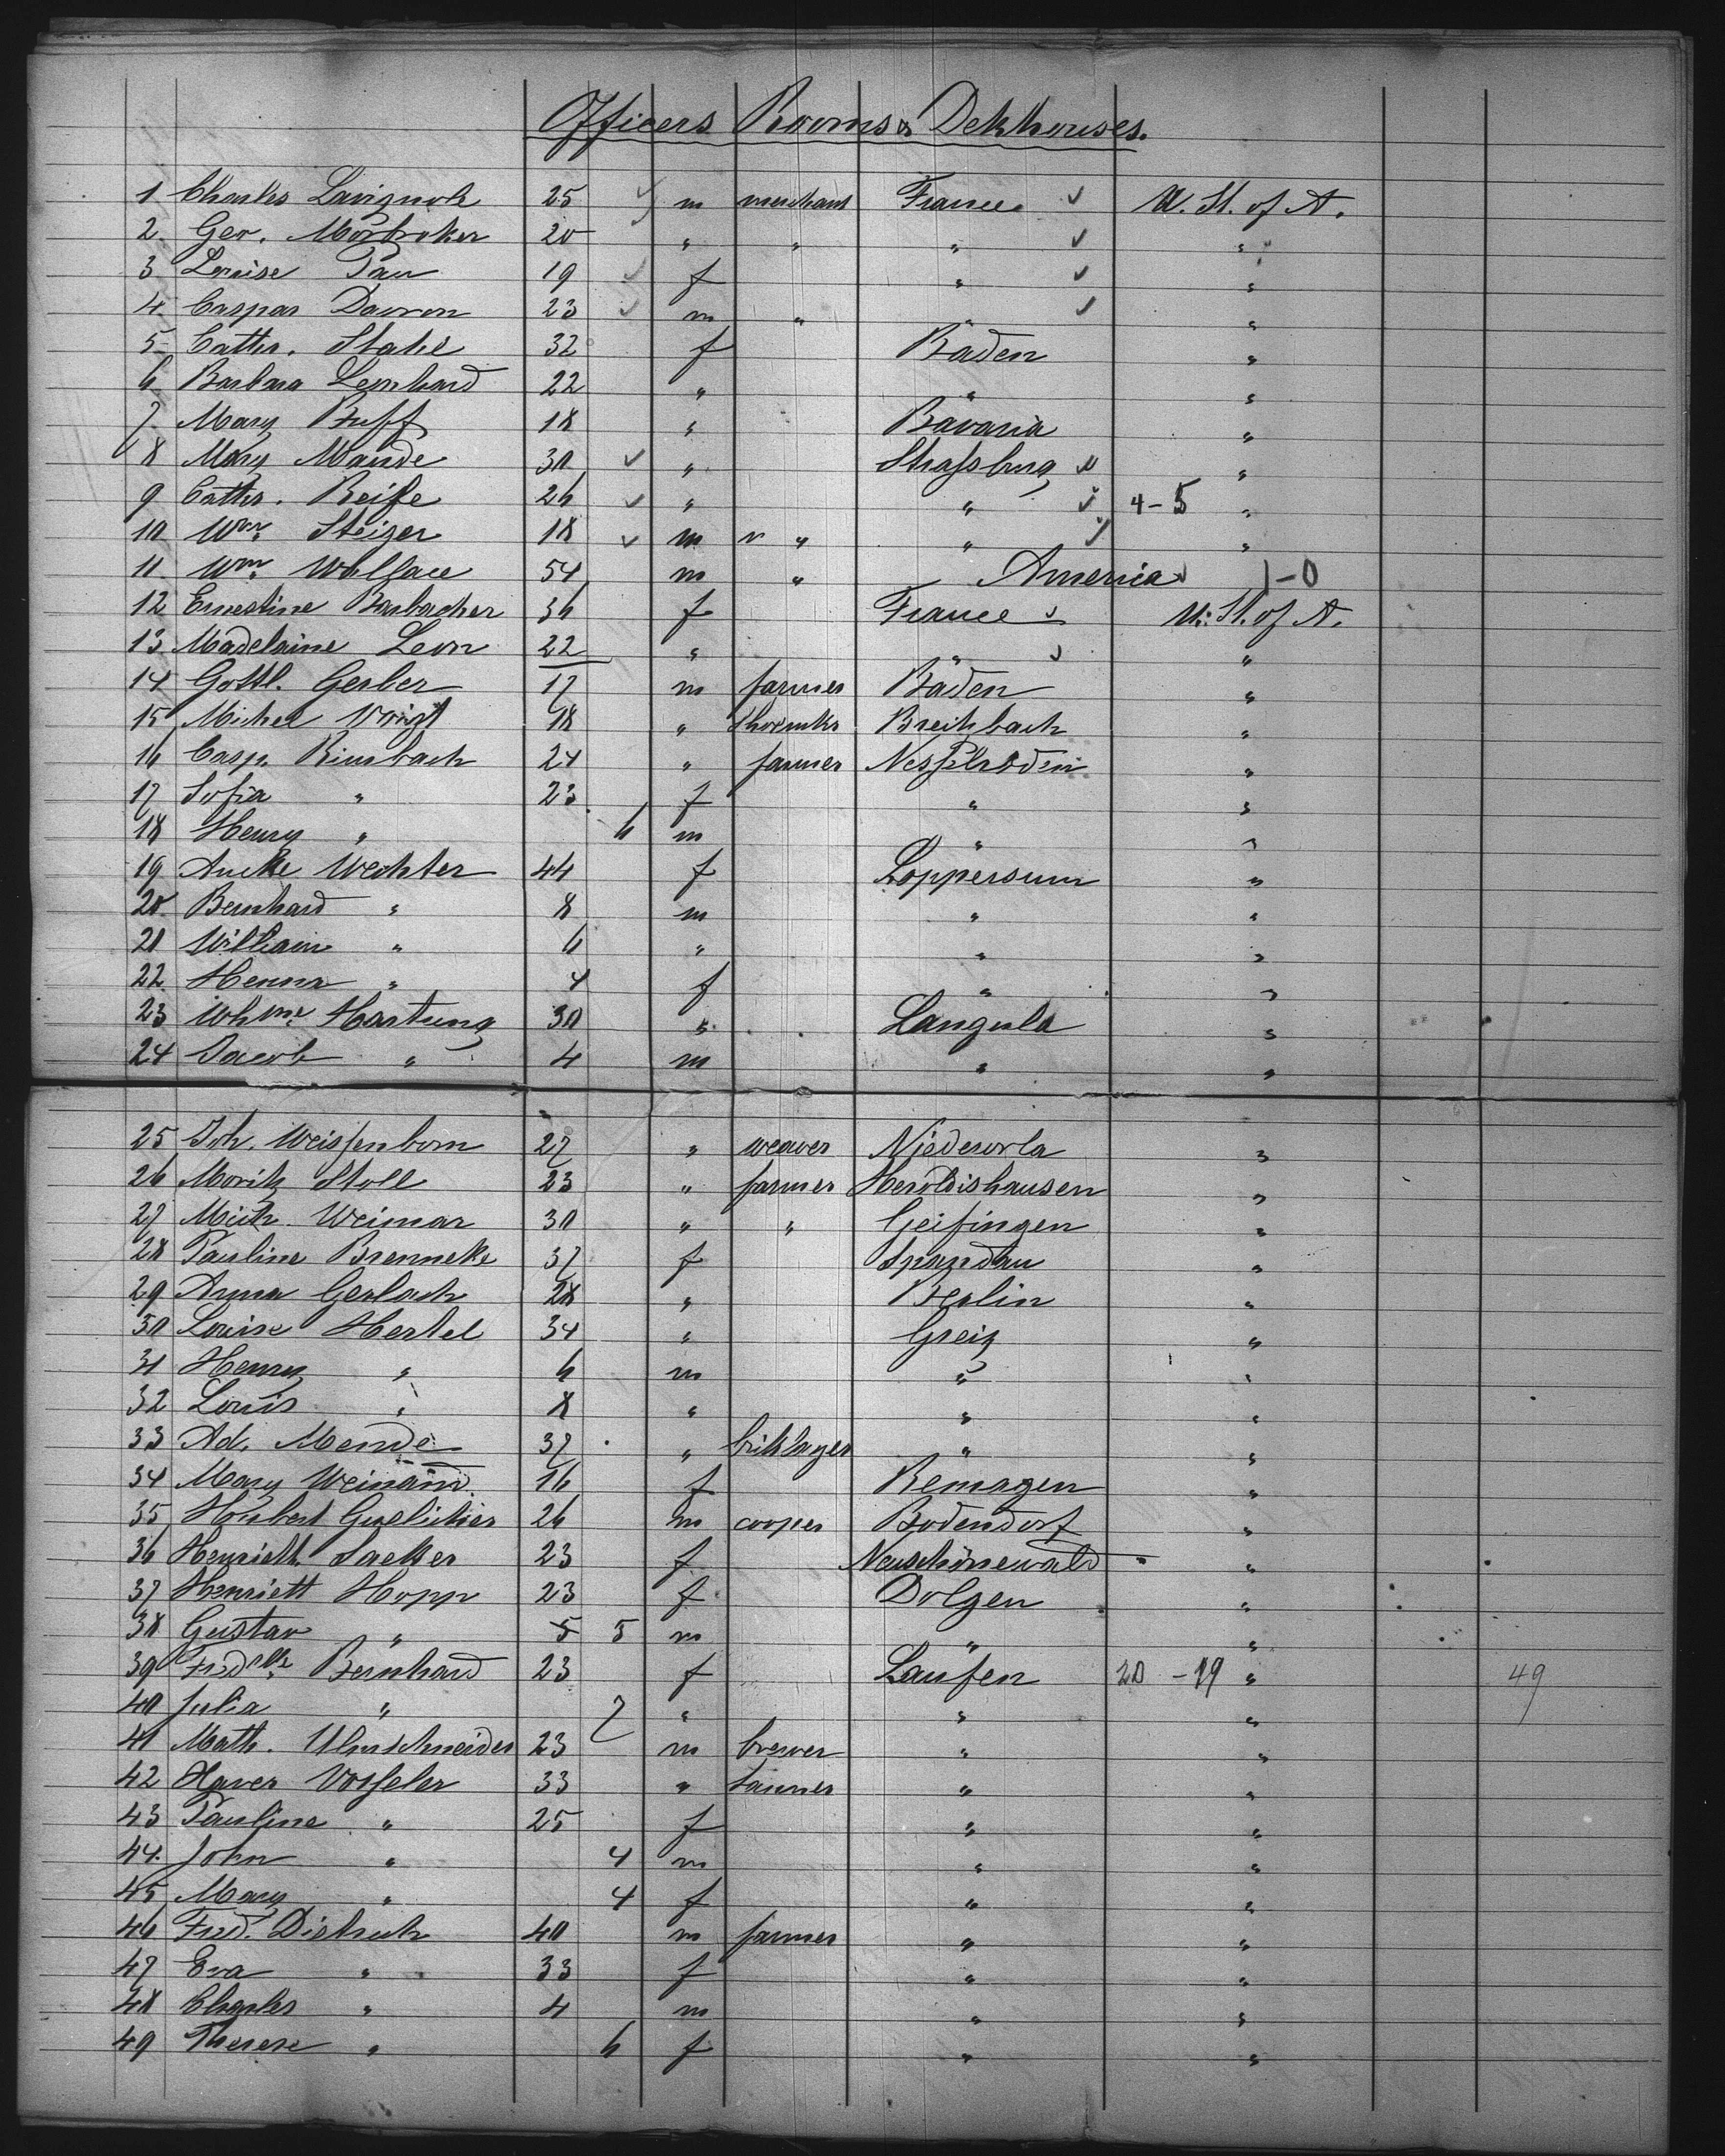 Officers Rooms & Dekhouses.
1 Charles Lavignole 25 m merchant France U. St. of A.
2 Geo. Morbroker 20 " " " "
3 Louise Pau 19 f " "
4 Caspar Davron 23 m " " "
5 Cathr. Stahl 32 f Baden "
6 Barbara Leonhard 22 " " "
7 Mary Buff 18 " Bavaria "
8 Mary Mande 30 " Straſsburg "
9 Cathr. Reiſse 26 " " 4-5 "
10 Wm. Steiger 18 m " " "
11 Wm. Wallace 54 m " America 1-0
12 Ernestine Barbacher 36 f France U. St. of A.
13 Madelaine Leon 22 " " "
14 Gottl. Gerber 17 m farmer Baden "
15 Michel Voigt 18 " shoemkr Breitzbach "
16 Casp. Rimbach 24 " farmer Neſselröden "
17 Sofia " 23 f " "
18 Henry " 6 m " "
19 Anke Wechter 44 f Loppersum "
20 Bernhard " 8 m " "
21 William " 6 " " "
22 Henna " 4 f " "
23 Whme. Hartung 30 " Langula "
24 Jacob " 4 m " "
25 Joh. Weiſsenborn 27 " weaver Niederorla "
26 Moritz Stoll 23 " farmer Heroldishausen "
27 Mich. Weimar 30 " " Geisingen "
28 Pauline Brenneke 37 f Spandau "
29 Anna Gerlach 28 " Berlin "
30 Louise Hertel 34 " Greiz "
31 Henry " 6 m " "
32 Louis " 8 " " "
33 Ad. Mende 37 " briklayer " "
34 Mary Weinand 16 f Remagen "
35 Hubert Guelicher 26 m cooper Bodendorf "
36 Henriett. Saelker 23 f Neuschönewald "
37 Henriett Hopp 23 f Dolgen "
38 Gustav " 5 5 m " "
39 Fredke Bernhard 23 f Laufen 20 -19 " 49
40 Julia " 7 " " "
41 Math. Ulmschneider 23 m brewer " "
42 Xaver Vosseler 33 " tanner " "
43 Pauline " 25 f " "
44 John " 4 m " "
45 Mary " 4 f " "
46 Fred. Dietrich 40 m farmer " "
47 Eva " 33 f " "
48 Charles " 4 m " "
49 Therese " 6 f " "